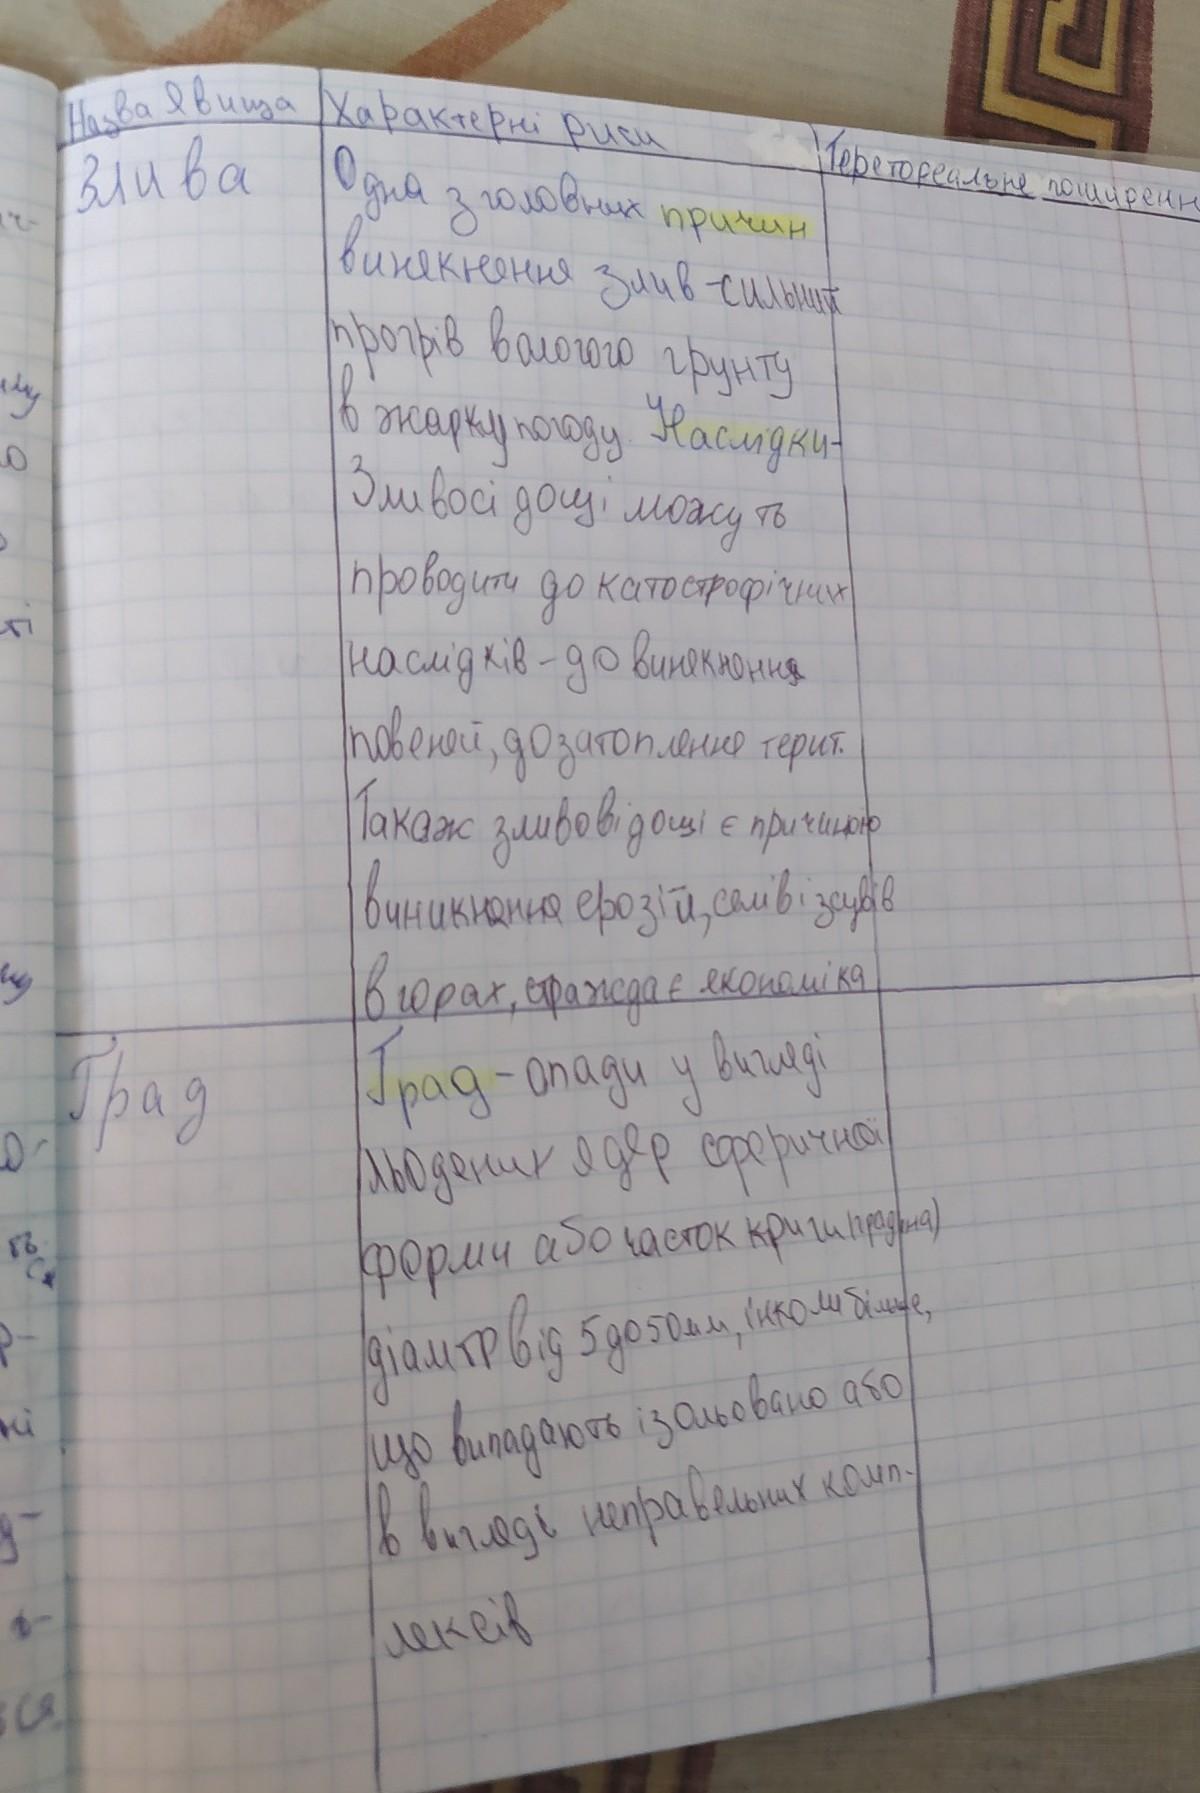 Назва явища Характерні риси Теретореальне поширенн
Злива Одна з головних причин
винекнення злив - сильний
прогрів вологого грунту
в жарку погоду. Наслідки -
Зливосі дощі можуть
проводити до катострофічних
наслідків - до винекнення
повеней, до затоплення терит.
Такаж зливові дощі є причиною
виникнення ерозій, селів і зсувів
в горах, страждає економіка
Град Град - опади у вигляді
льодених ядер сферичної
форми або часток криги
діамтр від 5 до 50 мм, інколи більше,
що випадають ізольовано або
в вигляді неправельних комп-
лексів